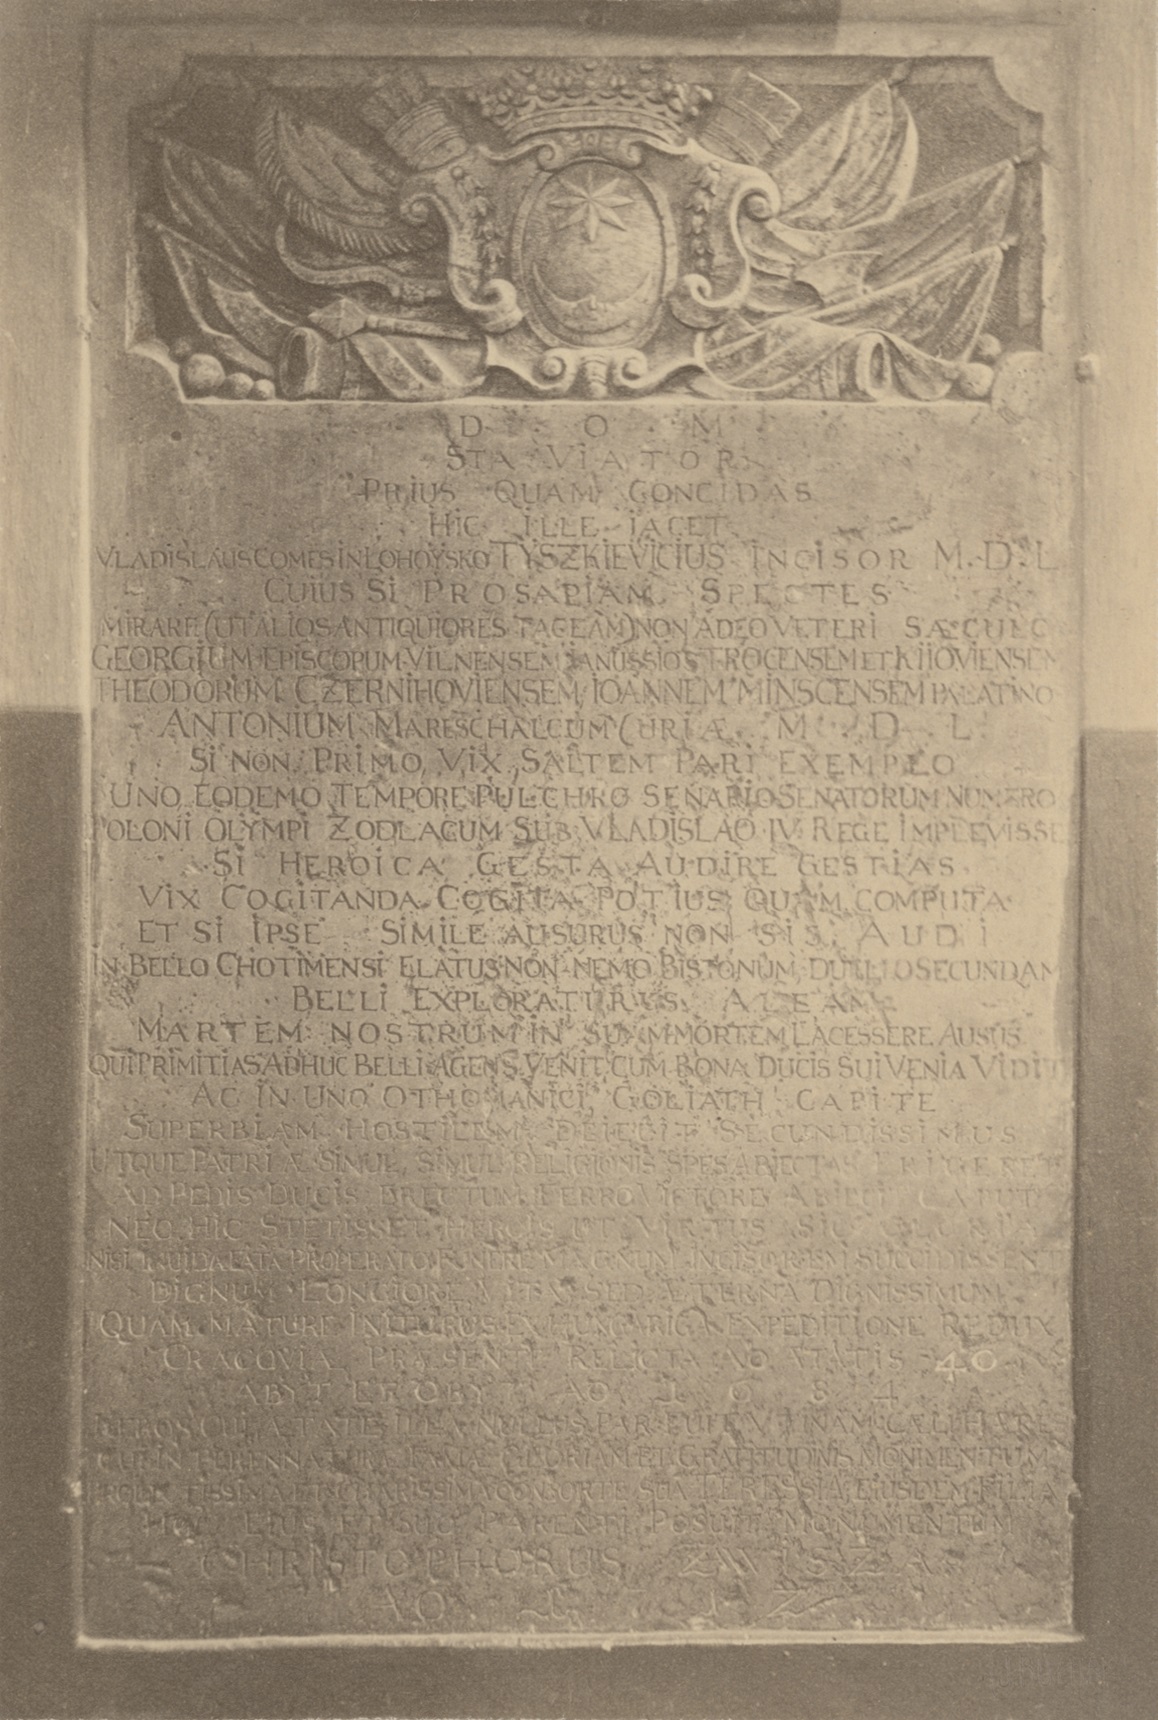 D O M
STA VIATOR
PRIUS QUAM CONCIDAS
HIC ILLE IACET
VLADISLAUS COMES IN LOHOYSKO TYSZKIEVICIUS INCISOR M. D. L
CUIUS SI PROSAPIAM SPECTES
MIRARE (UT ALIOS ANTIQUIORES TACEAM) NON ADEO VETERI SÆCULO
GEORGIUM EPISCOPUM VILNENSEM IANUSSIOS TROCENSEM ET KIIOVIENSEM
THEODORUM CZERNIHOVIENSEM, IOANNEM MINSCENSEM PALATINO
ANTONIUM MARESCHALCUM CURIÆ M D L
SI NON PRIMO, VIX SALTEM PARI EXEMPLO
UNO EODEMQ TEMPORE PULCHRO SENARIO SENATORUM NUMERO
POLONI OLYMPI ZODIACUM SUB VLADISLAO IV REGE IMPLEVISSE
SI HEROICA GESTA AUDIRE GESTIAS
VIX COGITANDA COGITA POTIUS QUAM COMPUTA
ET SI IPSE SIMILE AUSURUS NON SIS AUDI
IN BELLO CHOTIMENSI ELATUS NON NEMO BISTONUM, DUELLO SECUNDAM
BELLI EXPLORATURUS ALEAM
MARTEM NOSTRUM IN SUAM MORTEM LACESSERE AUSUS
QUI PRIMITIAS ADHUC BELLI AGENS VENIT CUM BONA DUCIS SUI VENIA VIDIT
AC IN UNO OTHOMANICI GOLIATH CAPITE
SUPERBIAM HOSTILEM DEIECIT SECUNDISSIMUS
UTQUE PATRIÆ SIMUL, SIMUL RELIGIONIS SPES ABIECTAS ERIGERET
AD PEDIS DUCIS ERECTUM FERRO VICTORE ABIECIT CAPUT
NEC HIC STETISSET HEROIS UT VIRTUS SIC GLORIA
NISI INVIDA FATA PROPERATO FUNERE MAGNUM INCISOREM SUCCIDISSENT
DIGNUM LONGIORE VITA SED ÆTERNA DIGNISSIMUM
QUAM MATURE INITURUS EX HUNGARICA EXPEDITIONE REDUX
CRACOVIA PRÆSENTE RELICTA AO ÆTATIS 40
ABYT ET OBYT AO 1684
HEROS CUI ÆTATE ILLA NULLUS PAR FUIT CÆLI HÆRES
CUI IN FAMÆ GLORIAM ET GRATITUDINIS MONIMENTUM
CHARISSIMA CONSORTE SUA TERESSIA EIUSDEM FILIA
HOC EIUS ET SUO PARENTI POSUIT MONUMENTUM
CHRISTOPHORUS ZAWISZA
AO